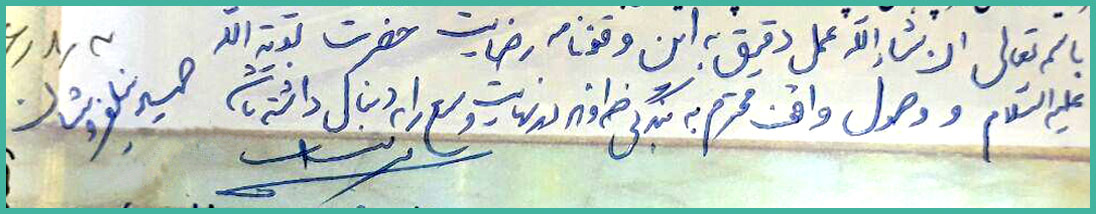 باسمه تعالی ان شاءالله عمل دقیق به این وقفنامه رضایت حضرت بقیة الله
علیه السلام و وصول واقف محترم به بندگی خداوند در نهایت وسع را به دنبال داشته باشد